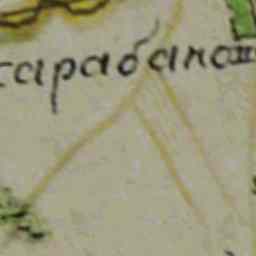 карабано